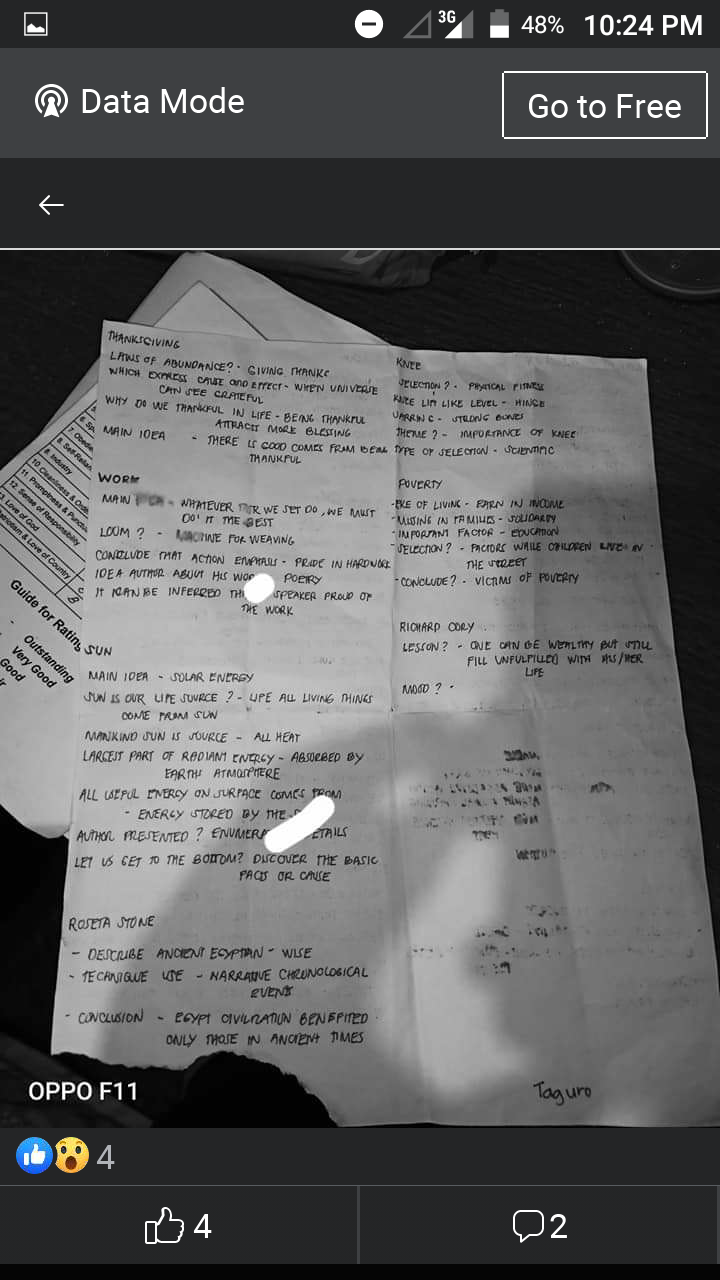 3G
48%
10:24 PM
Data Mode
Go to Free
THANKSGIVING
LAWS OF ABUNDANCE? - GIVING THANKS
WHICH EXPRESS CAUSE AND EFFECT - WHEN UNIVERSE
CAN SEE GRATEFUL
WHY DO WE THANKFUL IN LIFE - BEING THANKFUL
ATTRACTS MORE BLESSING
MAIN IDEA - THERE IS GOOD COMES FROM BEING
THANKFUL
WORK
MAIN - WHATEVER WE SET DO, WE MUST
DO IT THE BEST
LOOM? - MACHINE FOR WEAVING
CONCLUDE THAT ACTION EMPHASIS - PRIDE IN HARDWORK
IDEA AUTHOR ABOUT HIS POETRY
IT CAN BE INFERRED SPEAKER PROUD OF
THE WORK
SUN
MAIN IDEA - SOLAR ENERGY
SUN IS OUR LIFE SOURCE? - LIFE ALL LIVING THINGS
COME FROM SUN
MANKIND SUN IS SOURCE - ALL HEAT
LARGEST PART OF RADIANT ENERGY - ABSORBED BY
EARTHS ATMOSPHERE
ALL USEFUL ENERGY ON SURFACE COMES FROM
- ENERGY STORED BY THE
AUTHOR PRESENTED? ENUMERA ETAILS
LET US GET TO THE BOTTOM? DISCOVER THE BASIC
FACTS OR CAUSE
ROSETA STONE
- DESCRIBE ANCIENT EGYPTIAN - WISE
- TECHNIQUE USE - NARRATIVE CHRONOLOGICAL
EVENTS
- CONCLUSION - EGYPT CIVILIZATION BENEFITED
ONLY THOSE IN ANCIENT TIMES
KNEE
SELECTION? - PHYSICAL FITNESS
KNEE LIKE LEVEL - HINGE
- STRONG BONES
THEME? - IMPORTANCE OF KNEE
TYPE OF SELECTION - SCIENTIFIC
POVERTY
OF LIVING - EARN IN INCOME
- MISSING IN FAMILIES - SOLIDARITY
- IMPORTANT FACTOR - EDUCATION
- SELECTION? - FACTORS WHILE CHILDREN LIVE IN
THE STREET
- CONCLUDE? - VICTIMS OF POVERTY
RICHARD CORY
LESSON? - ONE CAN BE WEALTHY BUT STILL
FILL UNFULFILLED WITH HIS/HER
LIFE
MOOD? -
Taguro
8. Industry
10. Cleanliness & Orde
11. Promptness & Punctu
12. Sense of Responsibility
Love of God
Patriotism & Love of Country
Guide for Rating
- Outstanding
Very Good
Good
OPPO F11
4
4
2